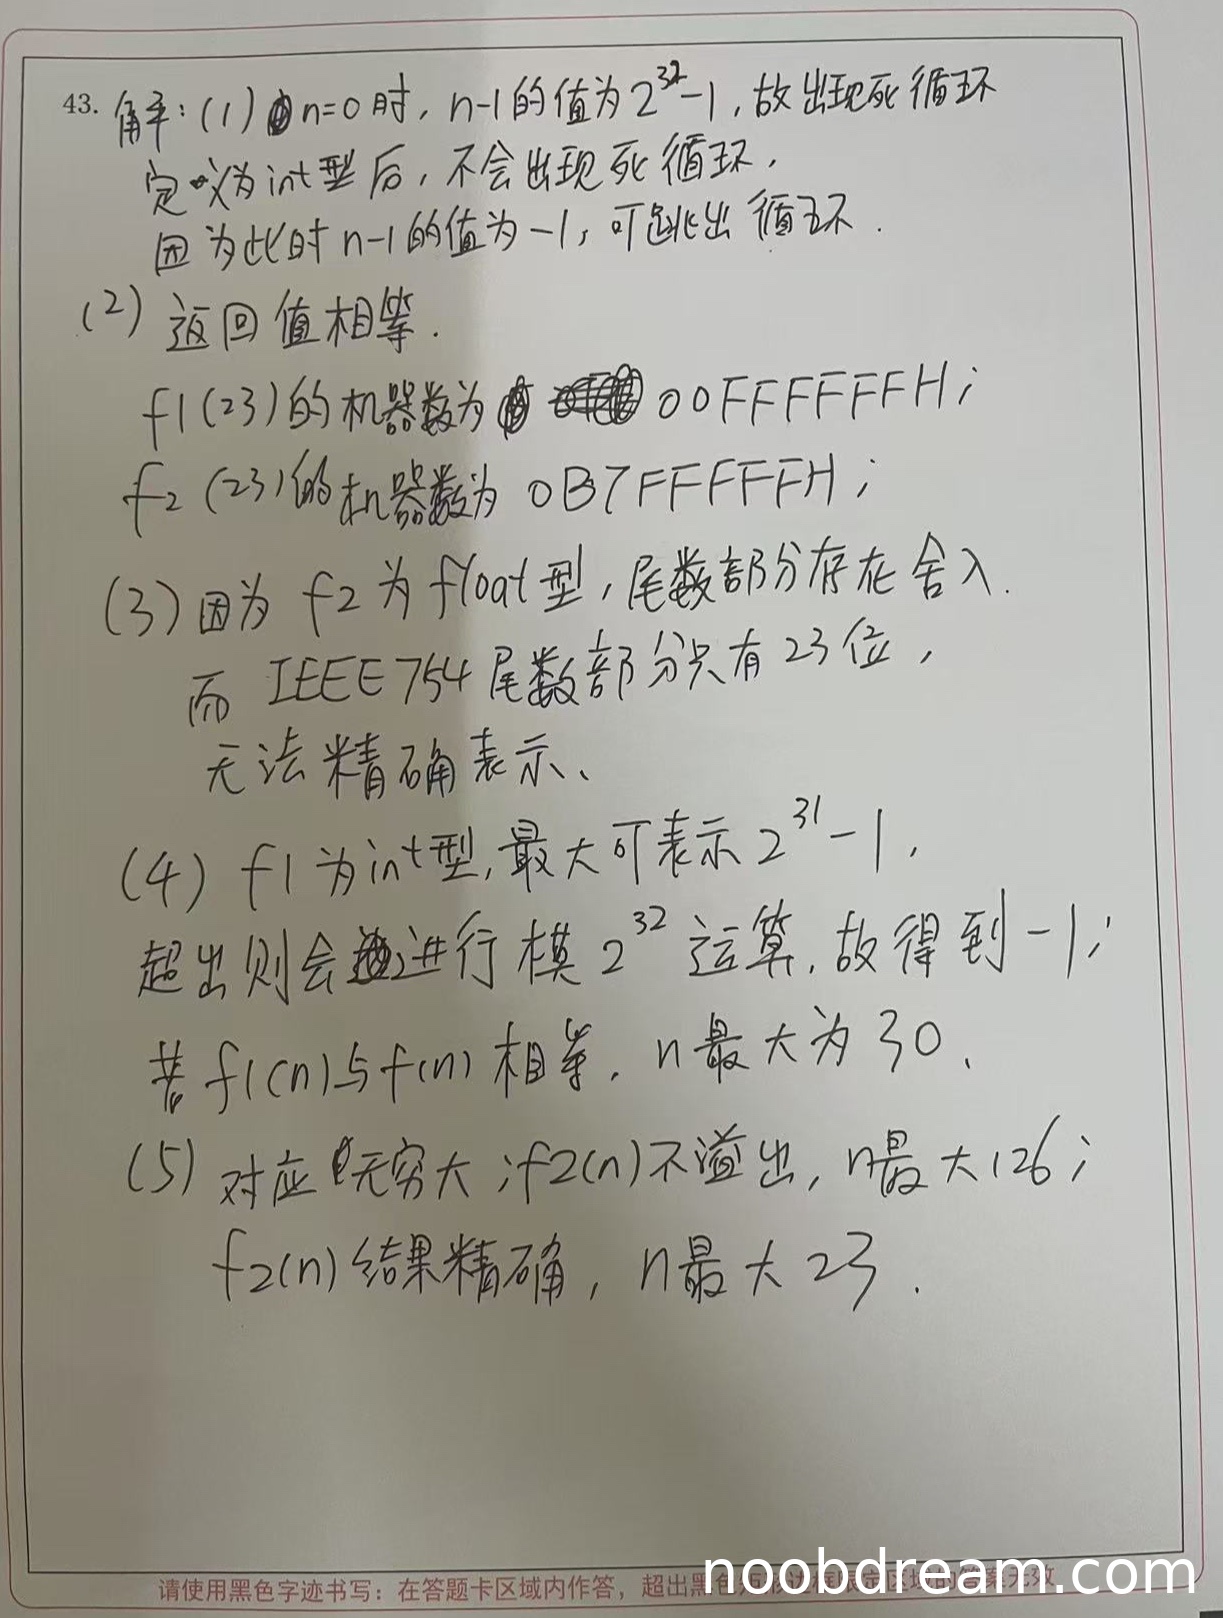 43. 解:(1) n=0时, n-1的值为2^32-1, 故出现死循环
定义为int型后, 不会出现死循环,
因为此时n-1的值为-1, 可跳出循环.
(2) 返回值相等.
f1(23)的机器数为 00FFFFFFH;
f2(23)的机器数为 0B7FFFFFH;
(3) 因为 f2为float型, 尾数部分存在舍入.
而 IEEE754尾数部分只有23位,
无法精确表示、
(4) f1为int型, 最大可表示2^31-1,
超出则会进行模2^32运算, 故得到-1;
若f1(n)与f(n)相等, n最大为30、
(5) 对应无穷大; f2(n)不溢出, n最大126;
f2(n)结果精确, n最大23.
请使用黑色字迹书写:在答题卡区域内作答, 超出黑色
noobdream.com